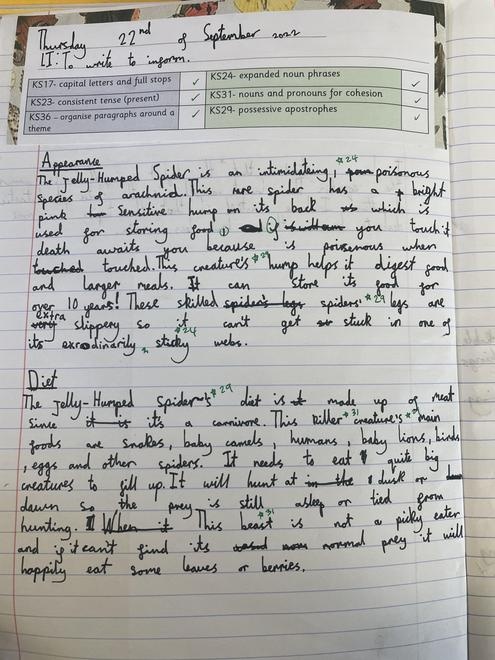 Thursday 22nd of September 2022
LI: To write to inform.
KS17- capital letters and full stops ✓ KS24- expanded noun phrases ✓
KS23- consistent tense (present) ✓ KS31- nouns and pronouns for cohesion ✓
KS36 – organise paragraphs around a theme ✓ KS29- possessive apostrophes ✓
Appearance
*24
The Jelly-Humped Spider is an intimidateing, poisonous
species of arachnid. This rare spider has a bright
pink sensitive hump on its back which is
used for storing food if you touch it
death awaits you because is poisenous when
touched. This creature's *29 hump helps it digest food
and larger meals. It can store its food for
over 10 years! These skilled spiders' *29 legs are
extra slippery so it can't get stuck in one of
its exraodinarily, sticky *24 webs.
Diet
The Jelly-Humped Spider's *29 diet is made up of meat
since it's a carnivore. This killer *31 creature's *29 main
foods are snakes, baby camels, humans, baby lions, birds
, eggs and other spiders. It needs to eat quite big
creatures to fill up. It will hunt at dusk or
dawn so the prey is still asleep or tied from
hunting. This beast *31 is not a picky eater
and if it can't find its normal prey it will
happily eat some leaves or berries.